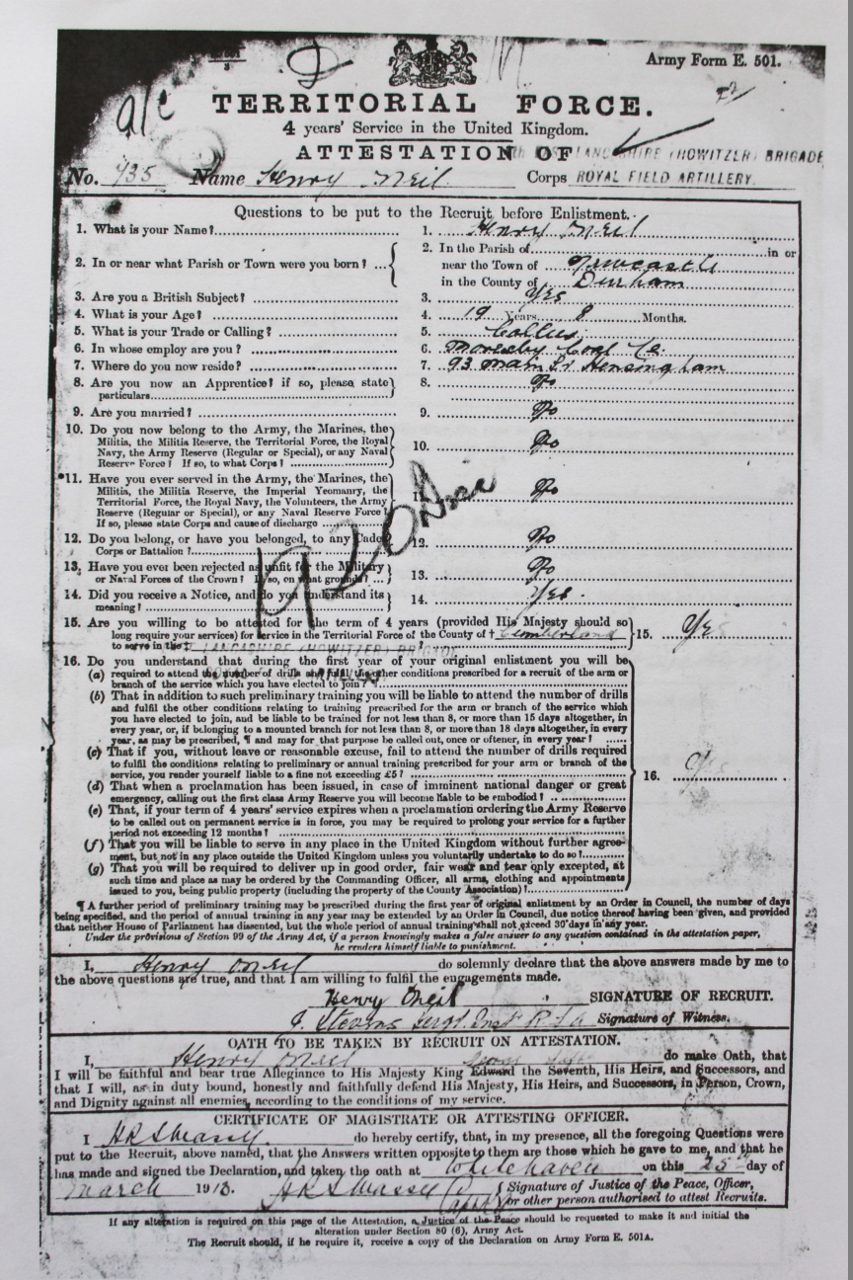 Army Form E. 501.
a/c
TERRITORIAL FORCE.
4 years' Service in the United Kingdom.
ATTESTATION OF
LANCASHIRE (HOWITZER) BRIGADE
No. 735 Name Henry Oneil Corps ROYAL FIELD ARTILLERY
Questions to be put to the Recruit before Enlistment.
1. What is your Name? 1. Henry Oneil
2. In or near what Parish or Town were you born? 2. In the Parish of in or
near the Town of Newcastle
in the County of Durham
3. Are you a British Subject? 3. Yes
4. What is your Age? 4. 19 Years 8 Months.
5. What is your Trade or Calling? 5.
6. In whose employ are you? 6. Moresby Coal Co.
7. Where do you now reside? 7. 93 Main St Hensingham
8. Are you now an Apprentice? if so, please state 8. No
particulars
9. Are you married? 9. No
10. Do you now belong to the Army, the Marines, the
Militia, the Militia Reserve, the Territorial Force, the Royal
Navy, the Army Reserve (Regular or Special), or any Naval 10. No
Reserve Force? If so, to what Corps?
*11. Have you ever served in the Army, the Marines, the
Militia, the Militia Reserve, the Imperial Yeomanry, the
Territorial Force, the Royal Navy, the Volunteers, the Army 11. No
Reserve (Regular or Special), or any Naval Reserve Force?
If so, please state Corps and cause of discharge
12. Do you belong, or have you belonged, to any Cadet 12. No
Corps or Battalion?
13. Have you ever been rejected as unfit for the Military 13. No
or Naval Forces of the Crown? If so, on what grounds?
14. Did you receive a Notice, and do you understand its 14. Yes.
meaning?
15. Are you willing to be attested for the term of 4 years (provided His Majesty should so
long require your services) for service in the Territorial Force of the County of † Cumberland 15. Yes
to serve in the ‡ LANCASHIRE (HOWITZER) BRIGADE
16. Do you understand that during the first year of your original enlistment you will be
(a) required to attend the number of drills and fulfil the other conditions prescribed for a recruit of the arm or
branch of the service which you have elected to join?
(b) That in addition to such preliminary training you will be liable to attend the number of drills
and fulfil the other conditions relating to training prescribed for the arm or branch of the service which
you have elected to join, and be liable to be trained for not less than 8, or more than 15 days altogether, in
every year, or, if belonging to a mounted branch for not less than 8, or more than 18 days altogether, in every
year, as may be prescribed, ¶ and may for that purpose be called out, once or oftener, in every year?
(c) That if you, without leave or reasonable excuse, fail to attend the number of drills required
to fulfil the conditions relating to preliminary or annual training prescribed for your arm or branch of the
service, you render yourself liable to a fine not exceeding £5? 16. Yes
(d) That when a proclamation has been issued, in case of imminent national danger or great
emergency, calling out the first class Army Reserve you will become liable to be embodied?
(e) That, if your term of 4 years' service expires when a proclamation ordering the Army Reserve
to be called out on permanent service is in force, you may be required to prolong your service for a further
period not exceeding 12 months?
(f) That you will be liable to serve in any place in the United Kingdom without further agree-
ment, but not in any place outside the United Kingdom unless you voluntarily undertake to do so?
(g) That you will be required to deliver up in good order, fair wear and tear only excepted, at
such time and place as may be ordered by the Commanding Officer, all arms, clothing and appointments
issued to you, being public property (including the property of the County Association)?
¶ A further period of preliminary training may be prescribed during the first year of original enlistment by an Order in Council, the number of days
being specified, and the period of annual training in any year may be extended by an Order in Council, due notice thereof having been given, and provided
that neither House of Parliament has dissented, but the whole period of annual training shall not exceed 30 days in any year.
Under the provisions of Section 99 of the Army Act, if a person knowingly makes a false answer to any question contained in the attestation paper,
he renders himself liable to punishment.
I, Henry Oneil do solemnly declare that the above answers made by me to
the above questions are true, and that I am willing to fulfil the engagements made.
Henry Oneil SIGNATURE OF RECRUIT.
J. Stevens Sergt. Inst R.F.A Signature of Witness.
OATH TO BE TAKEN BY RECRUIT ON ATTESTATION.
I, Henry Oneil do make Oath, that
I will be faithful and bear true Allegiance to His Majesty King Edward the Seventh, His Heirs, and Successors, and
that I will, as in duty bound, honestly and faithfully defend His Majesty, His Heirs, and Successors, in Person, Crown,
and Dignity against all enemies, according to the conditions of my service.
CERTIFICATE OF MAGISTRATE OR ATTESTING OFFICER.
I do hereby certify, that, in my presence, all the foregoing Questions were
put to the Recruit, above named, that the Answers written opposite to them are those which he gave to me, and that he
has made and signed the Declaration, and taken the oath at Whitehaven on this 25th day of
March 1913. Signature of Justice of the Peace, Officer,
or other person authorised to attest Recruits.
If any alteration is required on this page of the Attestation, a Justice of the Peace should be requested to make it and initial the
alteration under Section 80 (6), Army Act.
The Recruit should, if he require it, receive a copy of the Declaration on Army Form E. 501A.